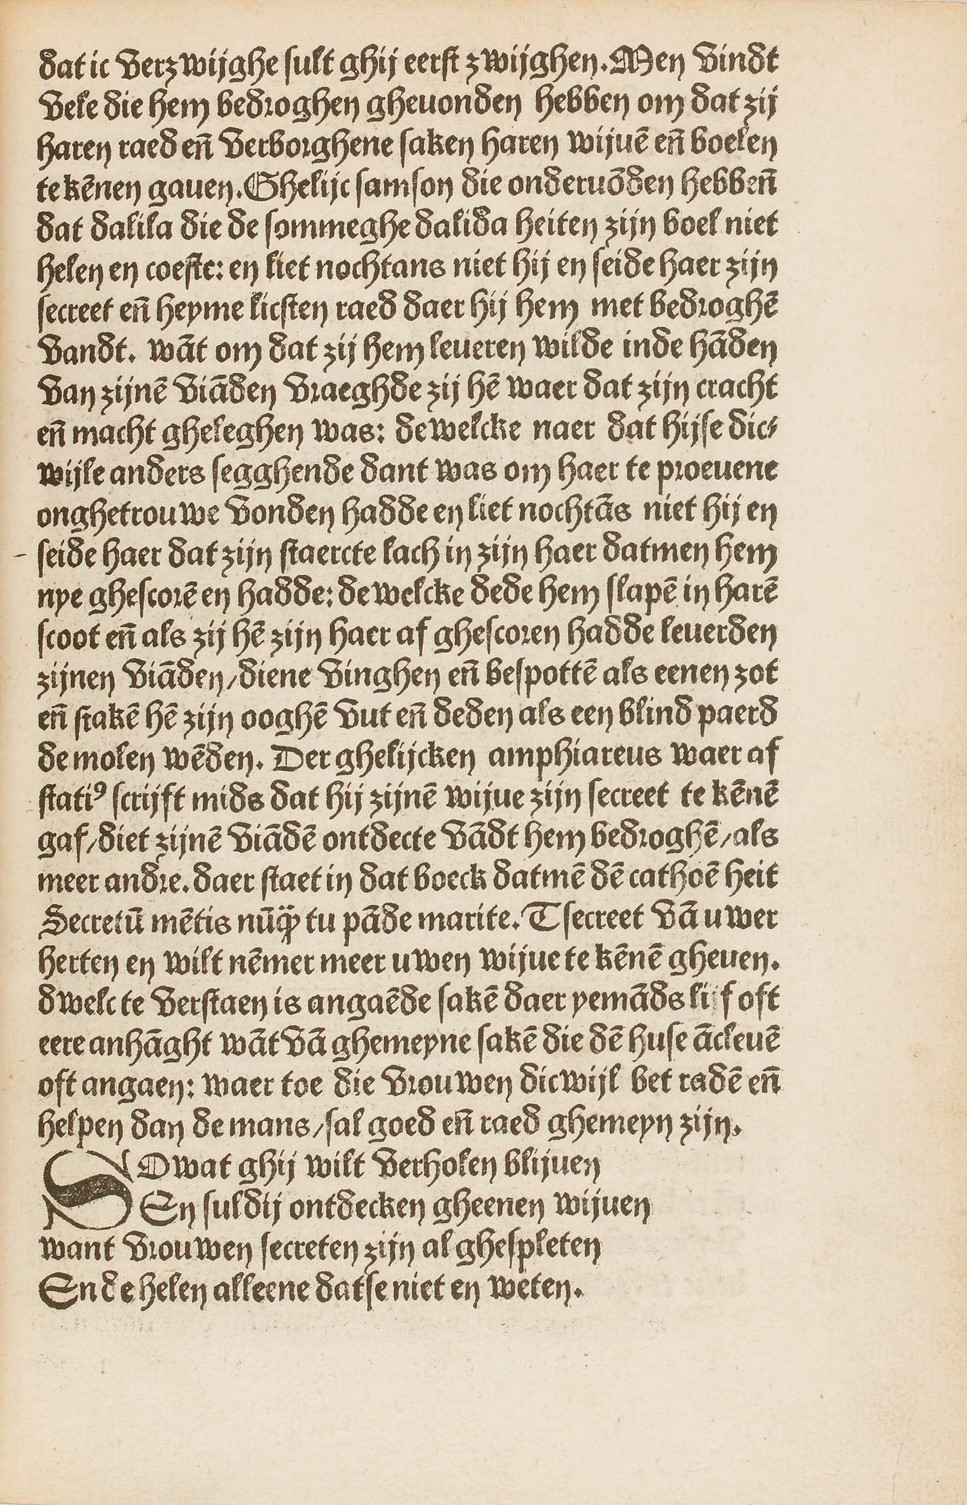 dat ic verzwijghe sult ghij eerst zwijghen. Men vindt
vele die hem bedroghen gheuonden hebben om dat zij
haren raed eñ verborghene saken haren wijuē eñ boelen
te kēnen gauen. Ghelijc samson die onderuōden hebbeñ
dat dalila die de sommeghe dalida heiten zijn boel niet
helen en coeste: en liet nochtans niet hij en seide haer zijn
secreet eñ heyme licsten raed daer hij hem met bedroghē
vandt. wāt om dat zij hem leueren wilde inde hāden
van zijnē viāden vraeghde zij hē waer dat zijn cracht
eñ macht gheleghen was: de welcke naer dat hijse dic⸗
wijle anders segghende dant was om haer te proeuene
onghetrouwe vonden hadde en liet nochtās niet hij en
seide haer dat zijn staercte lach in zijn haer datmen hem
nye ghescorē en hadde: de welcke dede hem slapē in harē
scoot eñ als zij hē zijn haer af ghescoren hadde leuerden
zijnen viāden/diene vinghen eñ bespottē als eenen zot
eñ stakē hē zijn ooghē vut eñ deden als een blind paerd
de molen wēden. Der ghelijcken amphiareus waer af
statiꝰ scrijft mids dat hij zijnē wijue zijn secreet te kēnē
gaf/diet zijnē viādē ontdecte vādt hem bedroghē/als
meer andre. daer staet in dat boeck datmē dē cathoē heit
Secretū mētis nūꝙ̄ tu pāde marite. Tsecreet vā uwer
herten en wilt nēmer meer uwen wijue te kēnē gheuen.
dwelc te verstaen is angaēde sakē daer yemāds lijf oft
eere anhāght wāt vā ghemeyne sakē die dē huse ācleuē
oft angaen: waer toe die vrouwen dicwijl bet radē eñ
helpen dan de mans/sal goed eñ raed ghemeyn zijn.
SO wat ghij wilt verholen blijuen
En suldij ontdecken gheenen wijuen
want vrouwen secreten zijn al ghespleten
Ende helen alleene datse niet en weten.